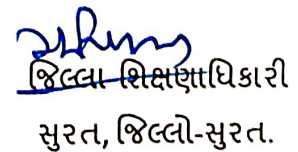 જિલ્લા શિક્ષણાધિકારી
સુરત, જિલ્લો-સુરત.